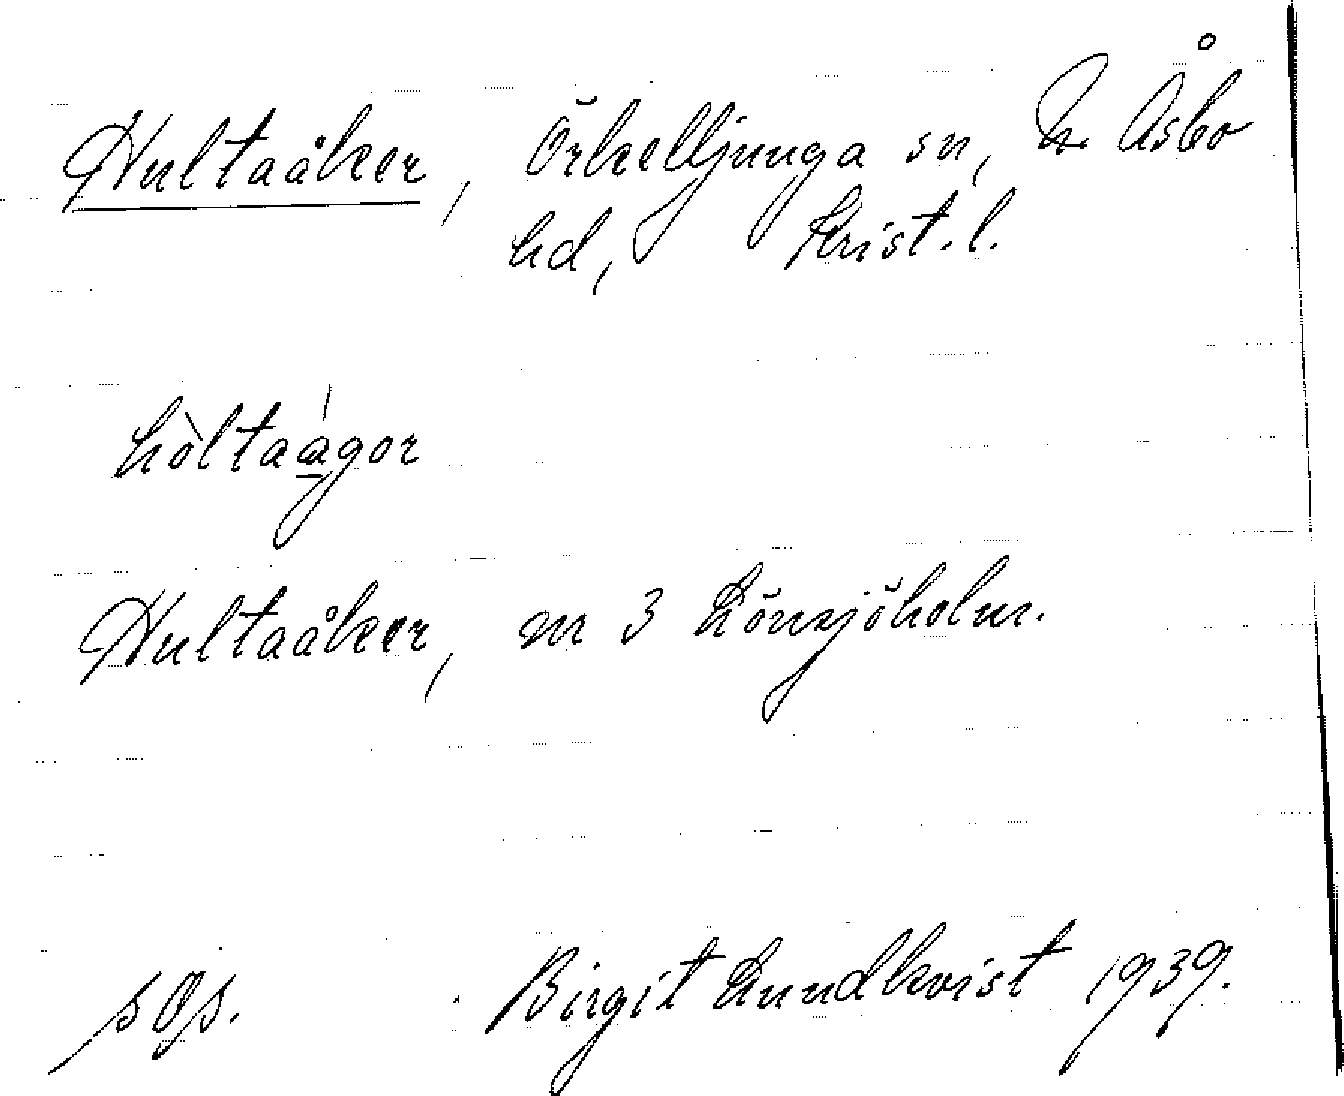 Hultaåker, Örkelljunga sn, N. Åsbo
hd, Krist. l.
hòltaágor
Hultaåker, nr 3 Lönsjöholm.
Birgit Lundkvist 1939.